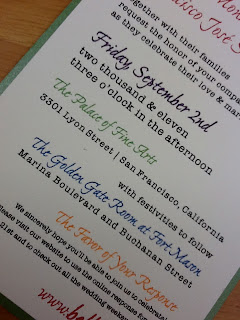 together with their families
request the honor of your
as they celebrate their love &
Friday, September 2nd
two thousand & eleven
three o'clock in the afternoon
The Palace of Fine Arts
3301 Lyon Street | San Francisco, California
with festivities to follow
The Golden Gate Room at Fort Mason
Marina Boulevard and Buchanan Street
The Favor of Your Response
We sincerely hope you'll be able to join us to celebrate!
Please visit our website to use the online response
21st and to check out all the wedding